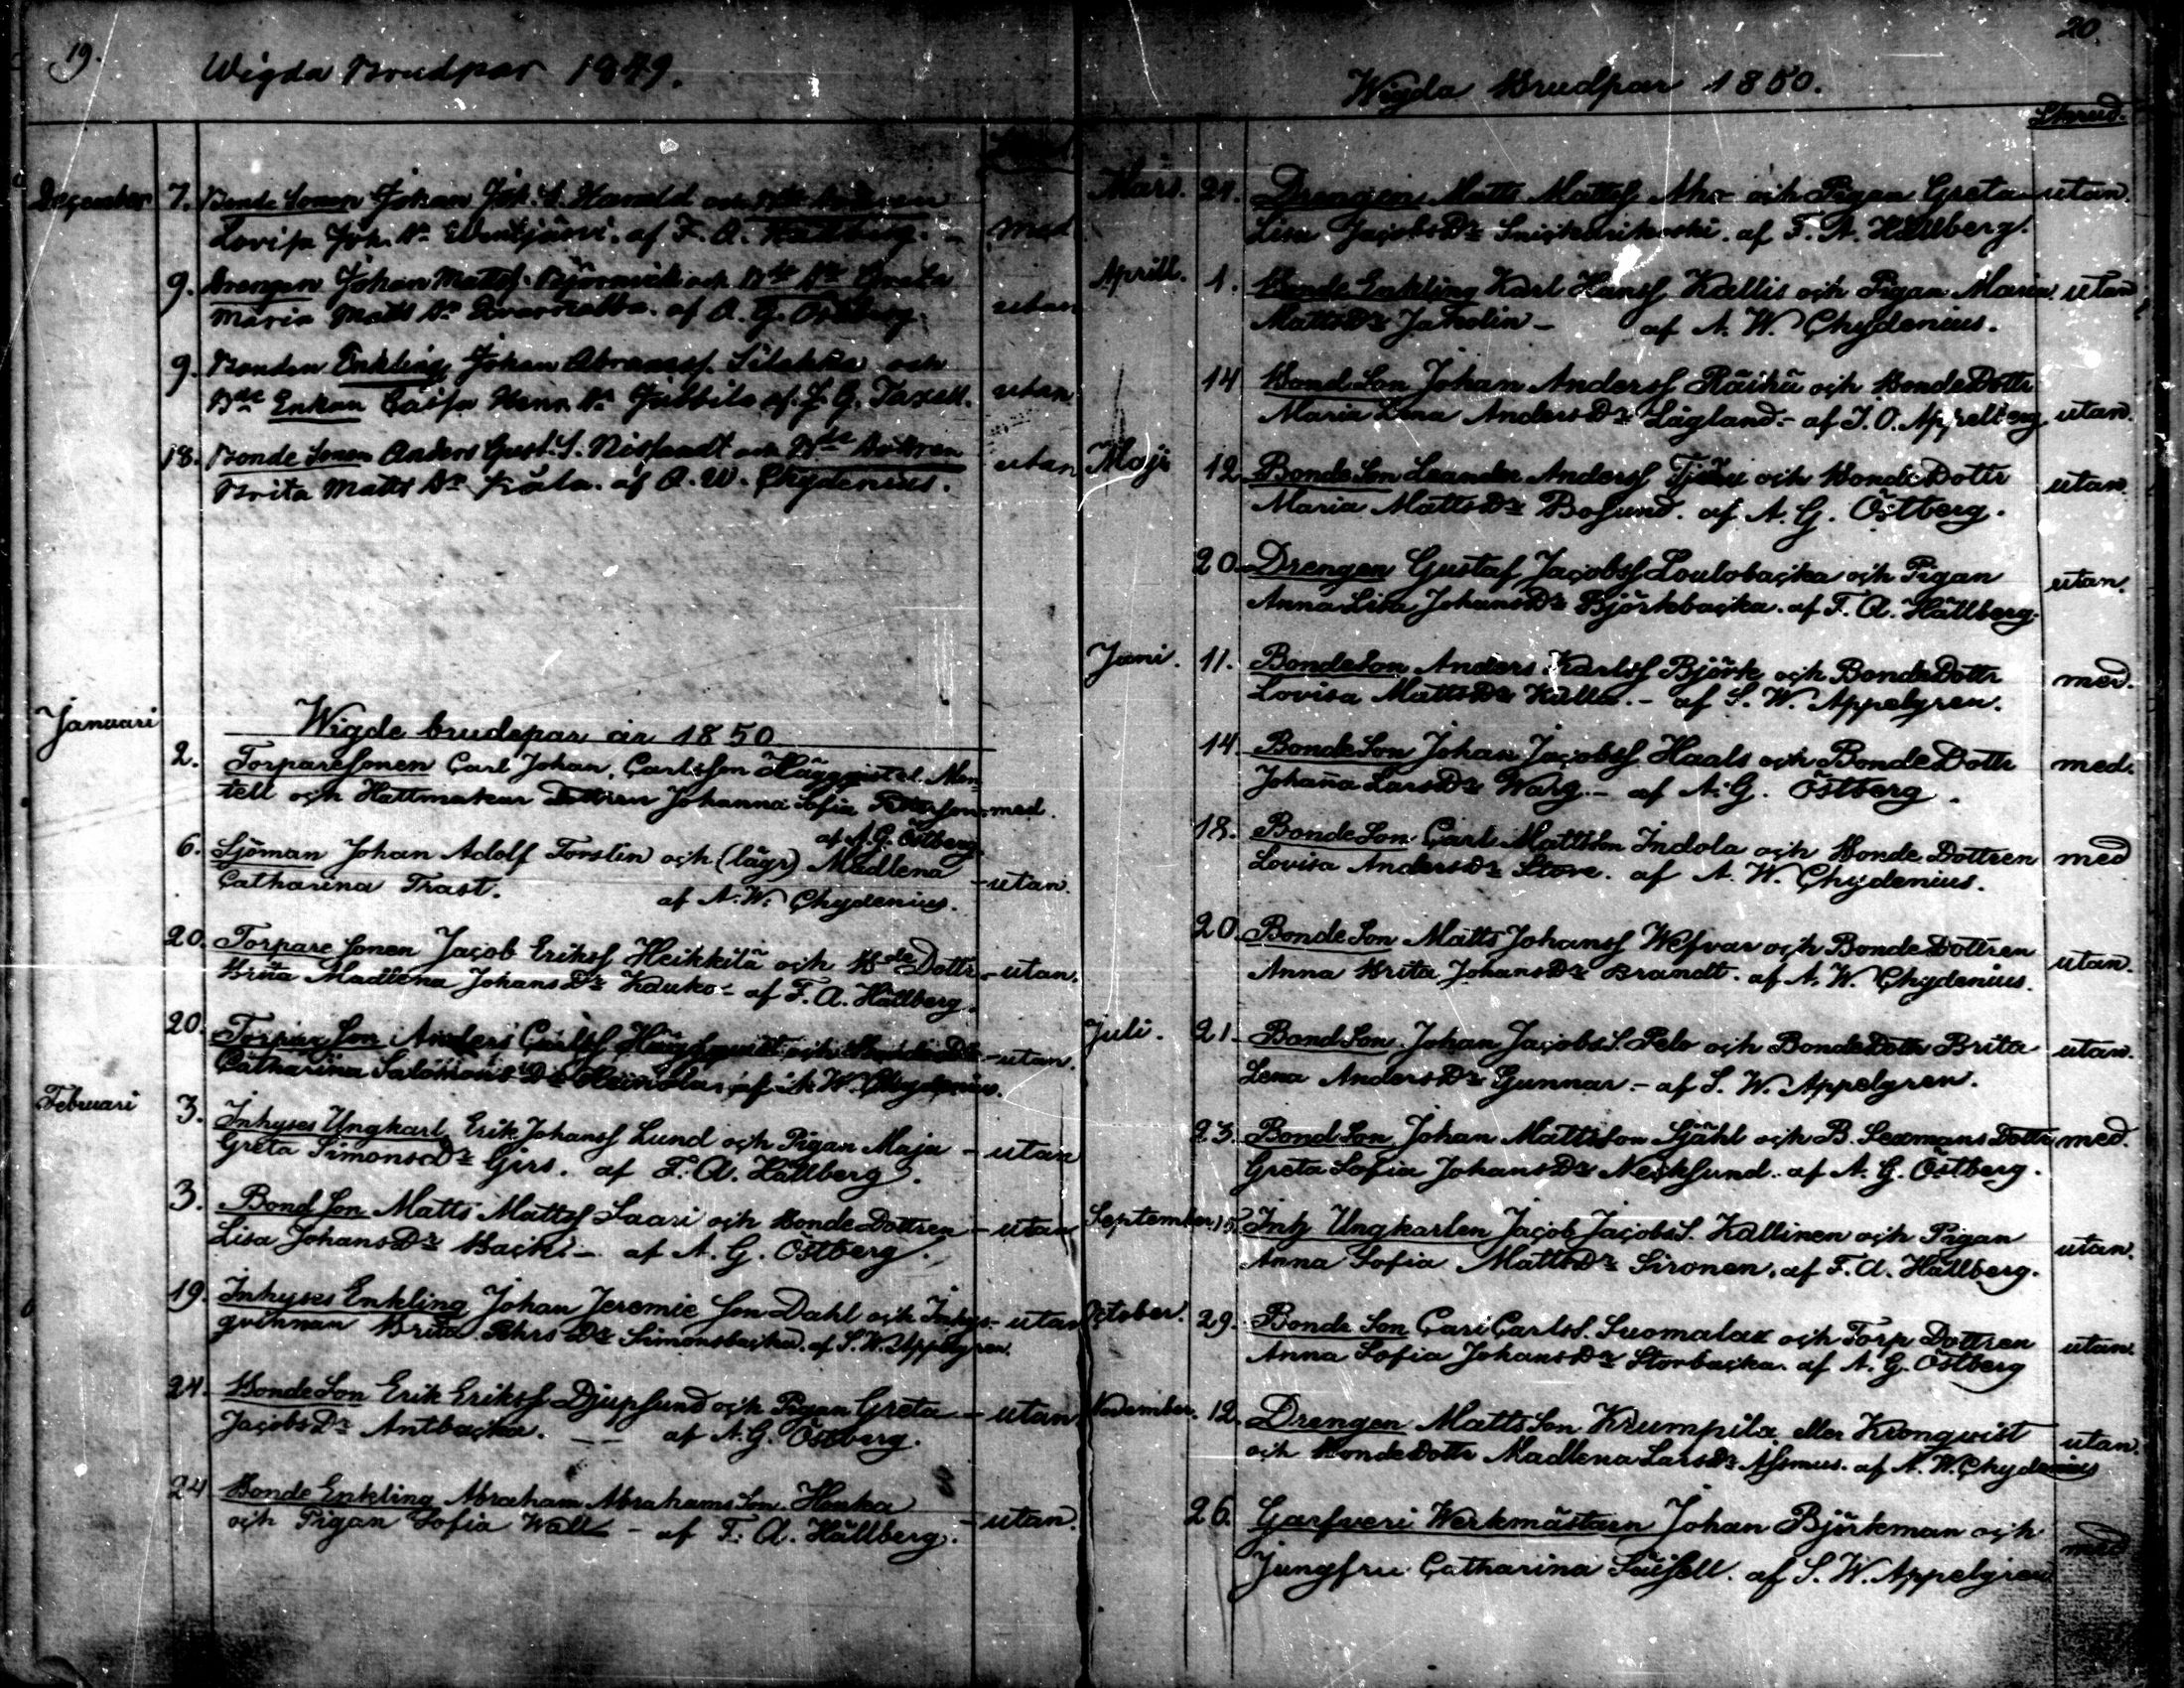 19.
Wigda Brudpar 1849.
December 7. Bonde Sonen Johan Joh. S. Harald och Bde Dottren
Lovisa Joh. Dr af F. A. Hällberg. - med
9. Drengen Johan Matts. Björnvik och Bde Dtr Greta
Maria Matts Dr af A. G. Östberg. utan
9. Bonden Enkling Johan Abramss. Silakka och
Bde Enkan Caisa Henr. Dr Jubbila af J. G. Taxell. utan
18. Bonde Sonen Anders Gust. S. och Bde Dottren
Brita Matts Dr Kåla. af A. W. Chydenius. utan
Wigde brudepar år 1850
Januari 2. Torparesonen Carl Johan, Carlsson Häggqist el. Man-
tell och Hattmakar Dottren Johanna Sofia - med.
af A. G. Östberg.
6. Sjöman Johan Adolf Torslin och (lägr) Madlena
Catharina Trast. af A. W. Chydenius. - utan.
20. Torpare Sonen Jacob Erikss Heikkilä och Bde Dottr - utan.
Brita Madlena Johans Dr Kauko - af F. A. Hällberg.
20. Torpar Son Anders Carlss Häggqvist och Bonde Dtr - utan.
Catharina Salomons Dr af A. W. Chydenius.
Februari 3. Inhyses Ungkarl Erik Johanss Lund och Pigan Maja - utan
Greta Simons Dr Girs. af F. A. Hällberg.
3. Bond Son Matts Mattss Saari och Bonde Dottren - utan
Lisa Johans Dr Backi - af A. G. Östberg.
19. Inhyses Enkling Johan Jeremie Son Dahl och Inhys- utan
qvinnan Brita Pehrs Dr Simonsbacka. af S. W. Appelgren.
24. Bonde Son Erik Erikss Djupsund och Pigan Greta - utan
Jacobs Dr Antbacka. - - af A. G. Östberg.
24 Bonde Enkling Abraham Abrahams Son Houka
och Pigan Sofia Wall - af F. A. Hällberg. - utan.
20.
Wigda Brudpar 1850.
Skrud.
Mars. 24. Drengen Matts Mattss Aho och Pigan Greta - utan.
Lisa Jacobs Dr af F. A. Hällberg.
Aprill. 1. Bonde Enkling Karl Hanss Kallis och Pigan Maria utan
Matts Dr Jakolin - af A. W. Chydenius.
14 Bond Son Johan Anderss Räihä och Bonde Dottr
Maria Lena Anders Dr Lågland. - af J. O. Appelberg utan.
Maji 12 Bonde Son Leander Anderss och Bonde Dottr utan.
Maria Matts Dr Bosund. af A. G. Östberg.
20. Drengen Gustaf Jacobss Loulobacka och Pigan utan.
Anna Lisa Johans Dr Björkbacka. af F. A. Hällberg.
Juni. 11. Bonde Son Anders Karlss Björk och Bonde Dottr med.
Lovisa Matts Dr Kulla. - af S. W. Appelgren.
14 Bonde Son Johan Jacobss Haals och Bonde Dottr med.
Johaña Lars Dr Warg. - af A. G. Östberg.
18. Bonde Son Carl Mattsson Indola och Bonde Dottren med
Lovisa Anders Dr Store. af A. W. Chydenius.
20. Bonde Son Matts Johanss Wefvar och Bonde Dottren utan.
Anna Brita Johans Dr Brandt. af A. W. Chydenius.
Juli. 21. Bond Son Johan Jacobs S. Pelo och Bonde Dottr Brita utan.
Lena Anders Dr Gunnar - af S. W. Appelgren.
23. Bond Son Johan Mattsson Sjähl och B. Sexmans Dottr med.
Greta Sofia Johans Dr Necksund. af A. G. Östberg.
September 15. Inh Ungkarlen Jacob Jacobs S. Kallinen och Pigan utan.
Anna Sofia Matts Dr Sironen. af F. A. Hällberg.
October. 29. Bonde Son Carl Carlss. Suomalax och Torp Dottren utan.
Anna Sofia Johans Dr Storbacka. af A. G. Östberg
November. 12. Drengen Matts Son Krumpila eller Kronqvist utan.
och Bonde Dottr Madlena Lars Dr Assmus. af A. W. Chydenius
26. Garfveri Werkmästarn Johan Björkman och med
Jungfru Catharina af S. W. Appelgren